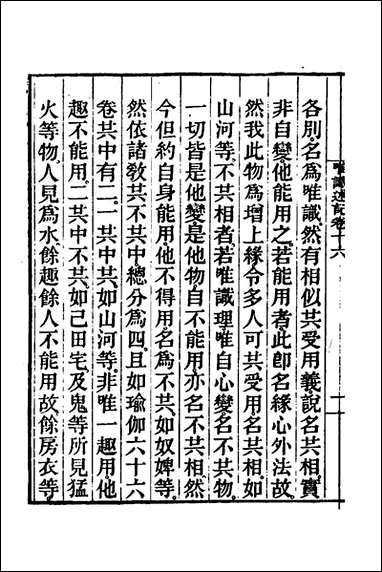 唯識述記卷十六
各別名爲唯識。然有相似共受用義說名共相。實
非自變他能用之。若能用者。此卽名緣心外法故。
然我此物爲增上緣。令多人可共受用名共相。如
山河等。不共相者。若唯識理唯自心變名不共物。
一切皆是他變是他物。自不能用亦名不共相。然
今但約自身能用他不得用。名爲不共。如奴婢等。
然依諸教共不共中總分爲四。且如瑜伽六十六
卷共中有二。一共中共。如山河等。非唯一趣用他
趣不能用。二共中不共。如己田宅。及鬼等所見猛
火等物。人見爲水。餘趣餘人不能用故。餘房衣等。